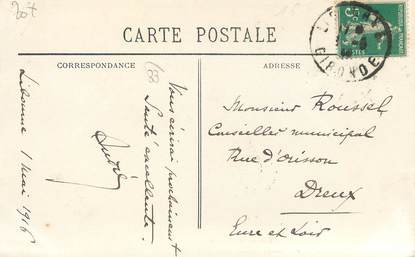 20+
CARTE POSTALE
CORRESPONDANCE
ADRESSE
(33)
Libourne 1 Mai 1916
Vous écrirai prochainement
Santé excellente.
André
GIRONDE
Monsieur Roussel
Conseiller municipal
Rue d'Orisson
Dreux
Eure et Loir